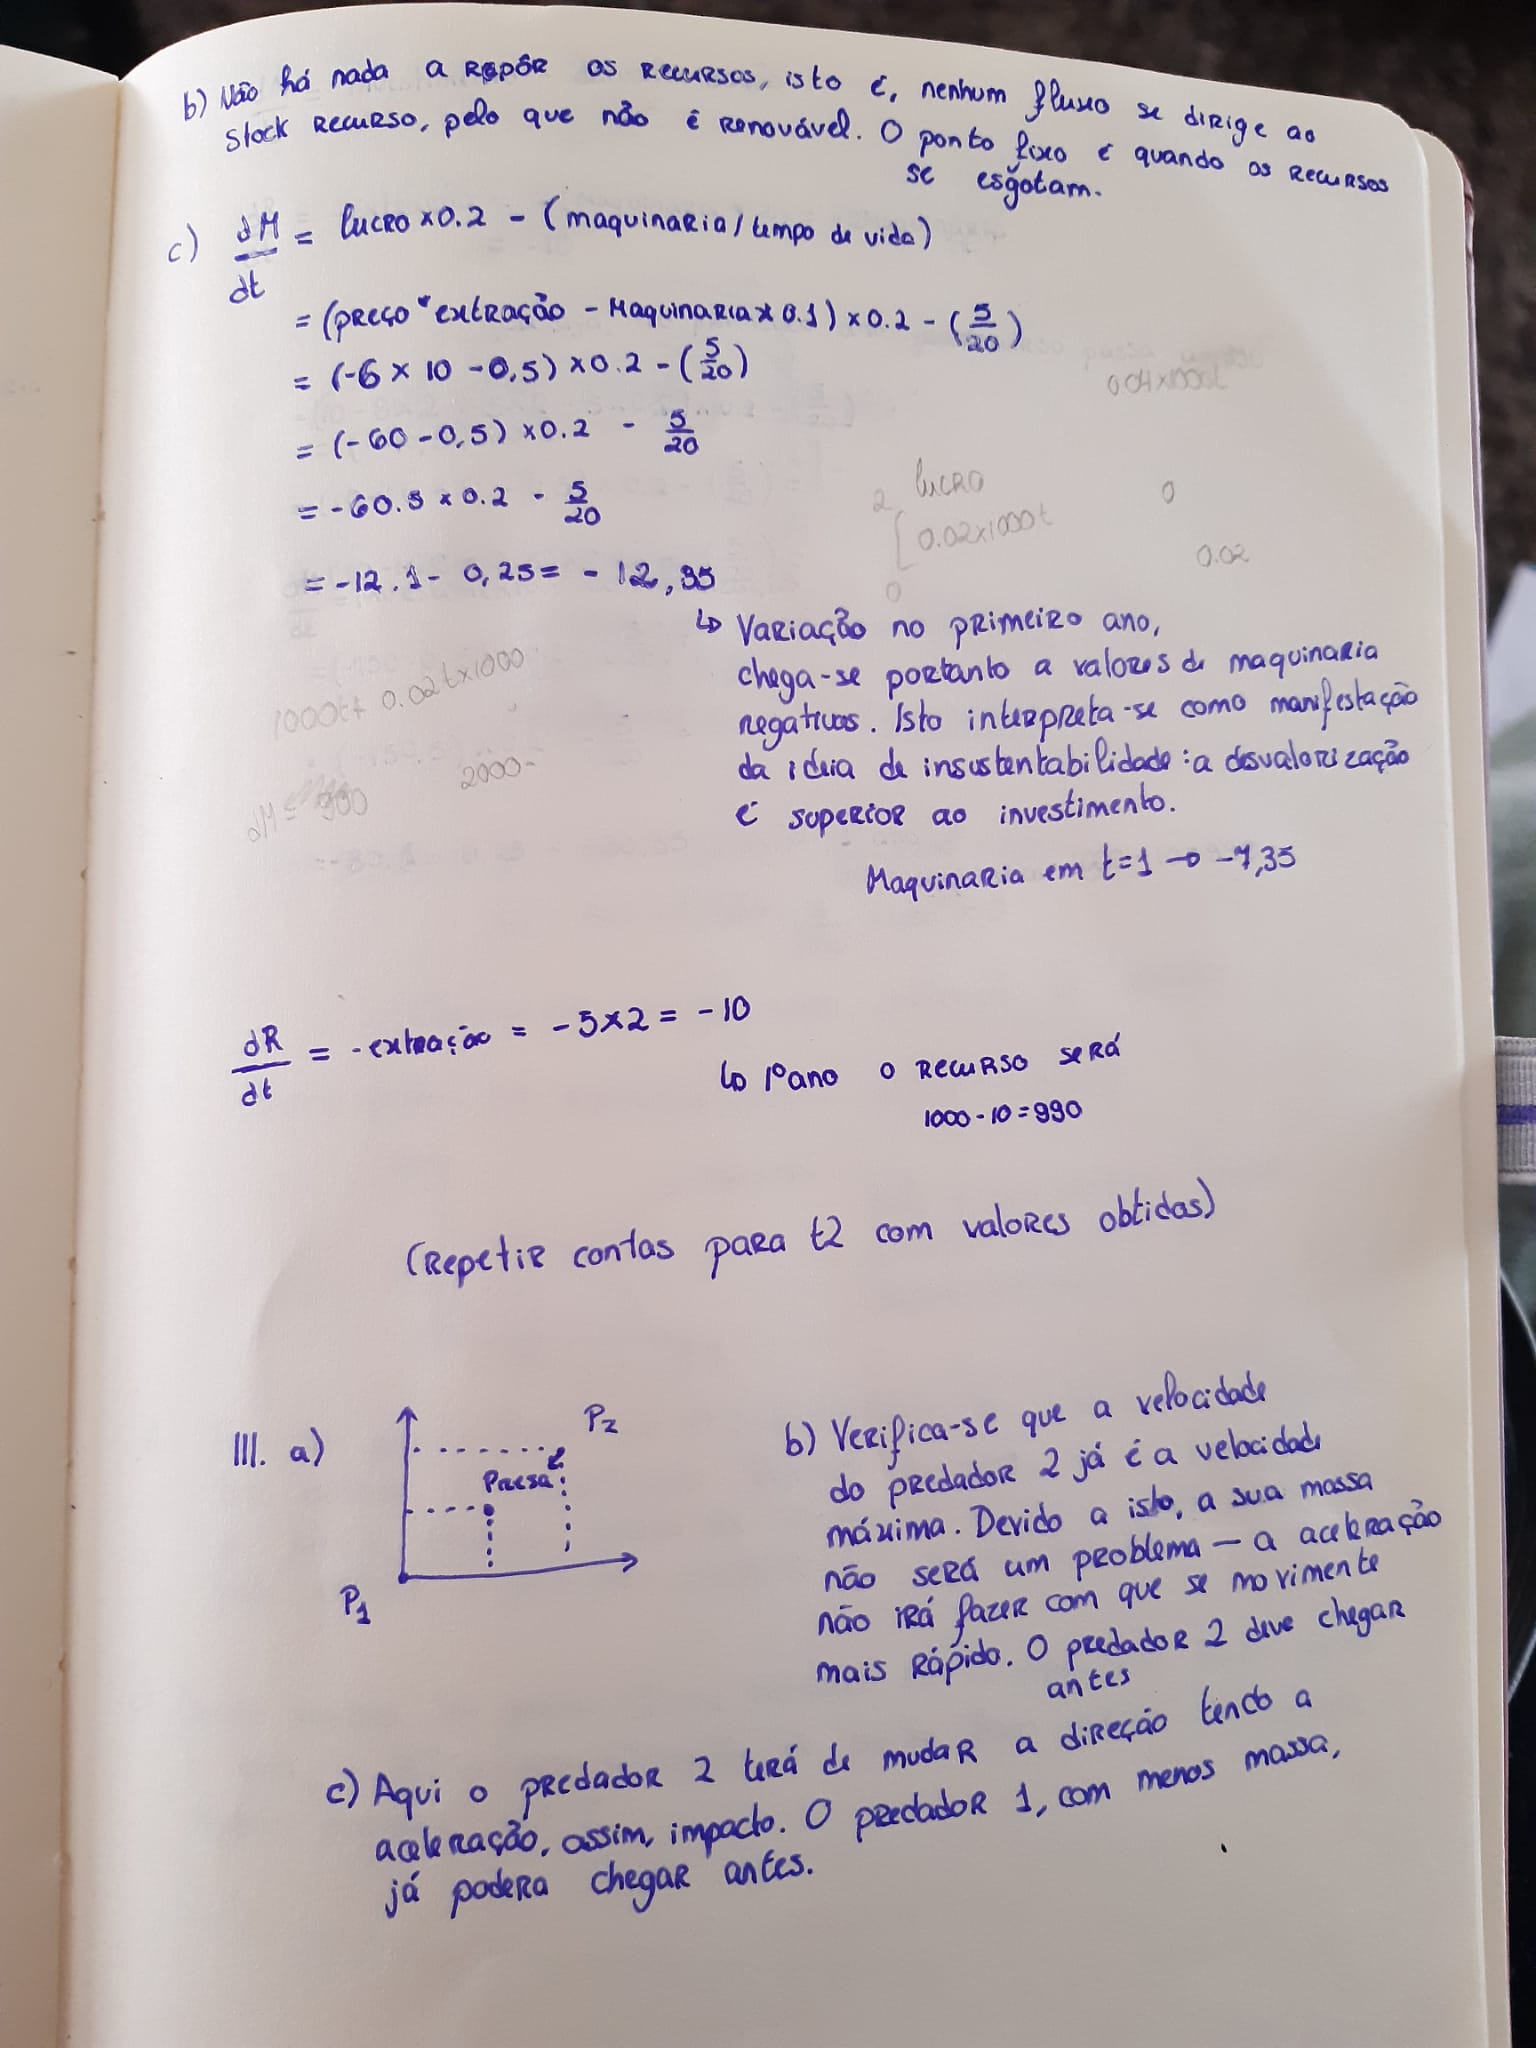 b) Não há nada a repôr os recursos, isto é, nenhum fluxo se dirige ao
Stock recurso, pelo que não é renovável. O ponto fixo é quando os recursos
se esgotam.
c) dM/dt = lucro x0.2 - (maquinaria/tempo de vida)
= (preço * extração - Maquinaria x 0.1) x0.2 - (5/20)
= (-6 x 10 -0,5) x0.2 - (5/20)
0.04x1000t
= (-60 -0,5) x0.2 - 5/20
lucro
= -60.5 x 0.2 - 5/20
2
0.02x1000t
0
0
0.02
= -12.1 - 0,25 = -12,35
↳ Variação no primeiro ano,
chega-se portanto a valores de maquinaria
negativos. Isto interpreta-se como manifestação
da ideia de insustentabilidade: a desvalorização
é superior ao investimento.
1000t+ 0.02tx1000
2000-
dM = 990
Maquinaria em t=1 → -7,35
dR/dt = -extração = -5x2 = -10
↳ 1º ano o recurso será
1000-10=990
(Repetir contas para t2 com valores obtidos)
III. a)
P2
Presa
P1
b) Verifica-se que a velocidade
do predador 2 já é a velocidade
máxima. Devido a isto, a sua massa
não será um problema — a aceleração
não irá fazer com que se movimente
mais rápido. O predador 2 deve chegar
antes
c) Aqui o predador 2 terá de mudar a direção tendo a
aceleração, assim, impacto. O predador 1, com menos massa,
já podera chegar antes.